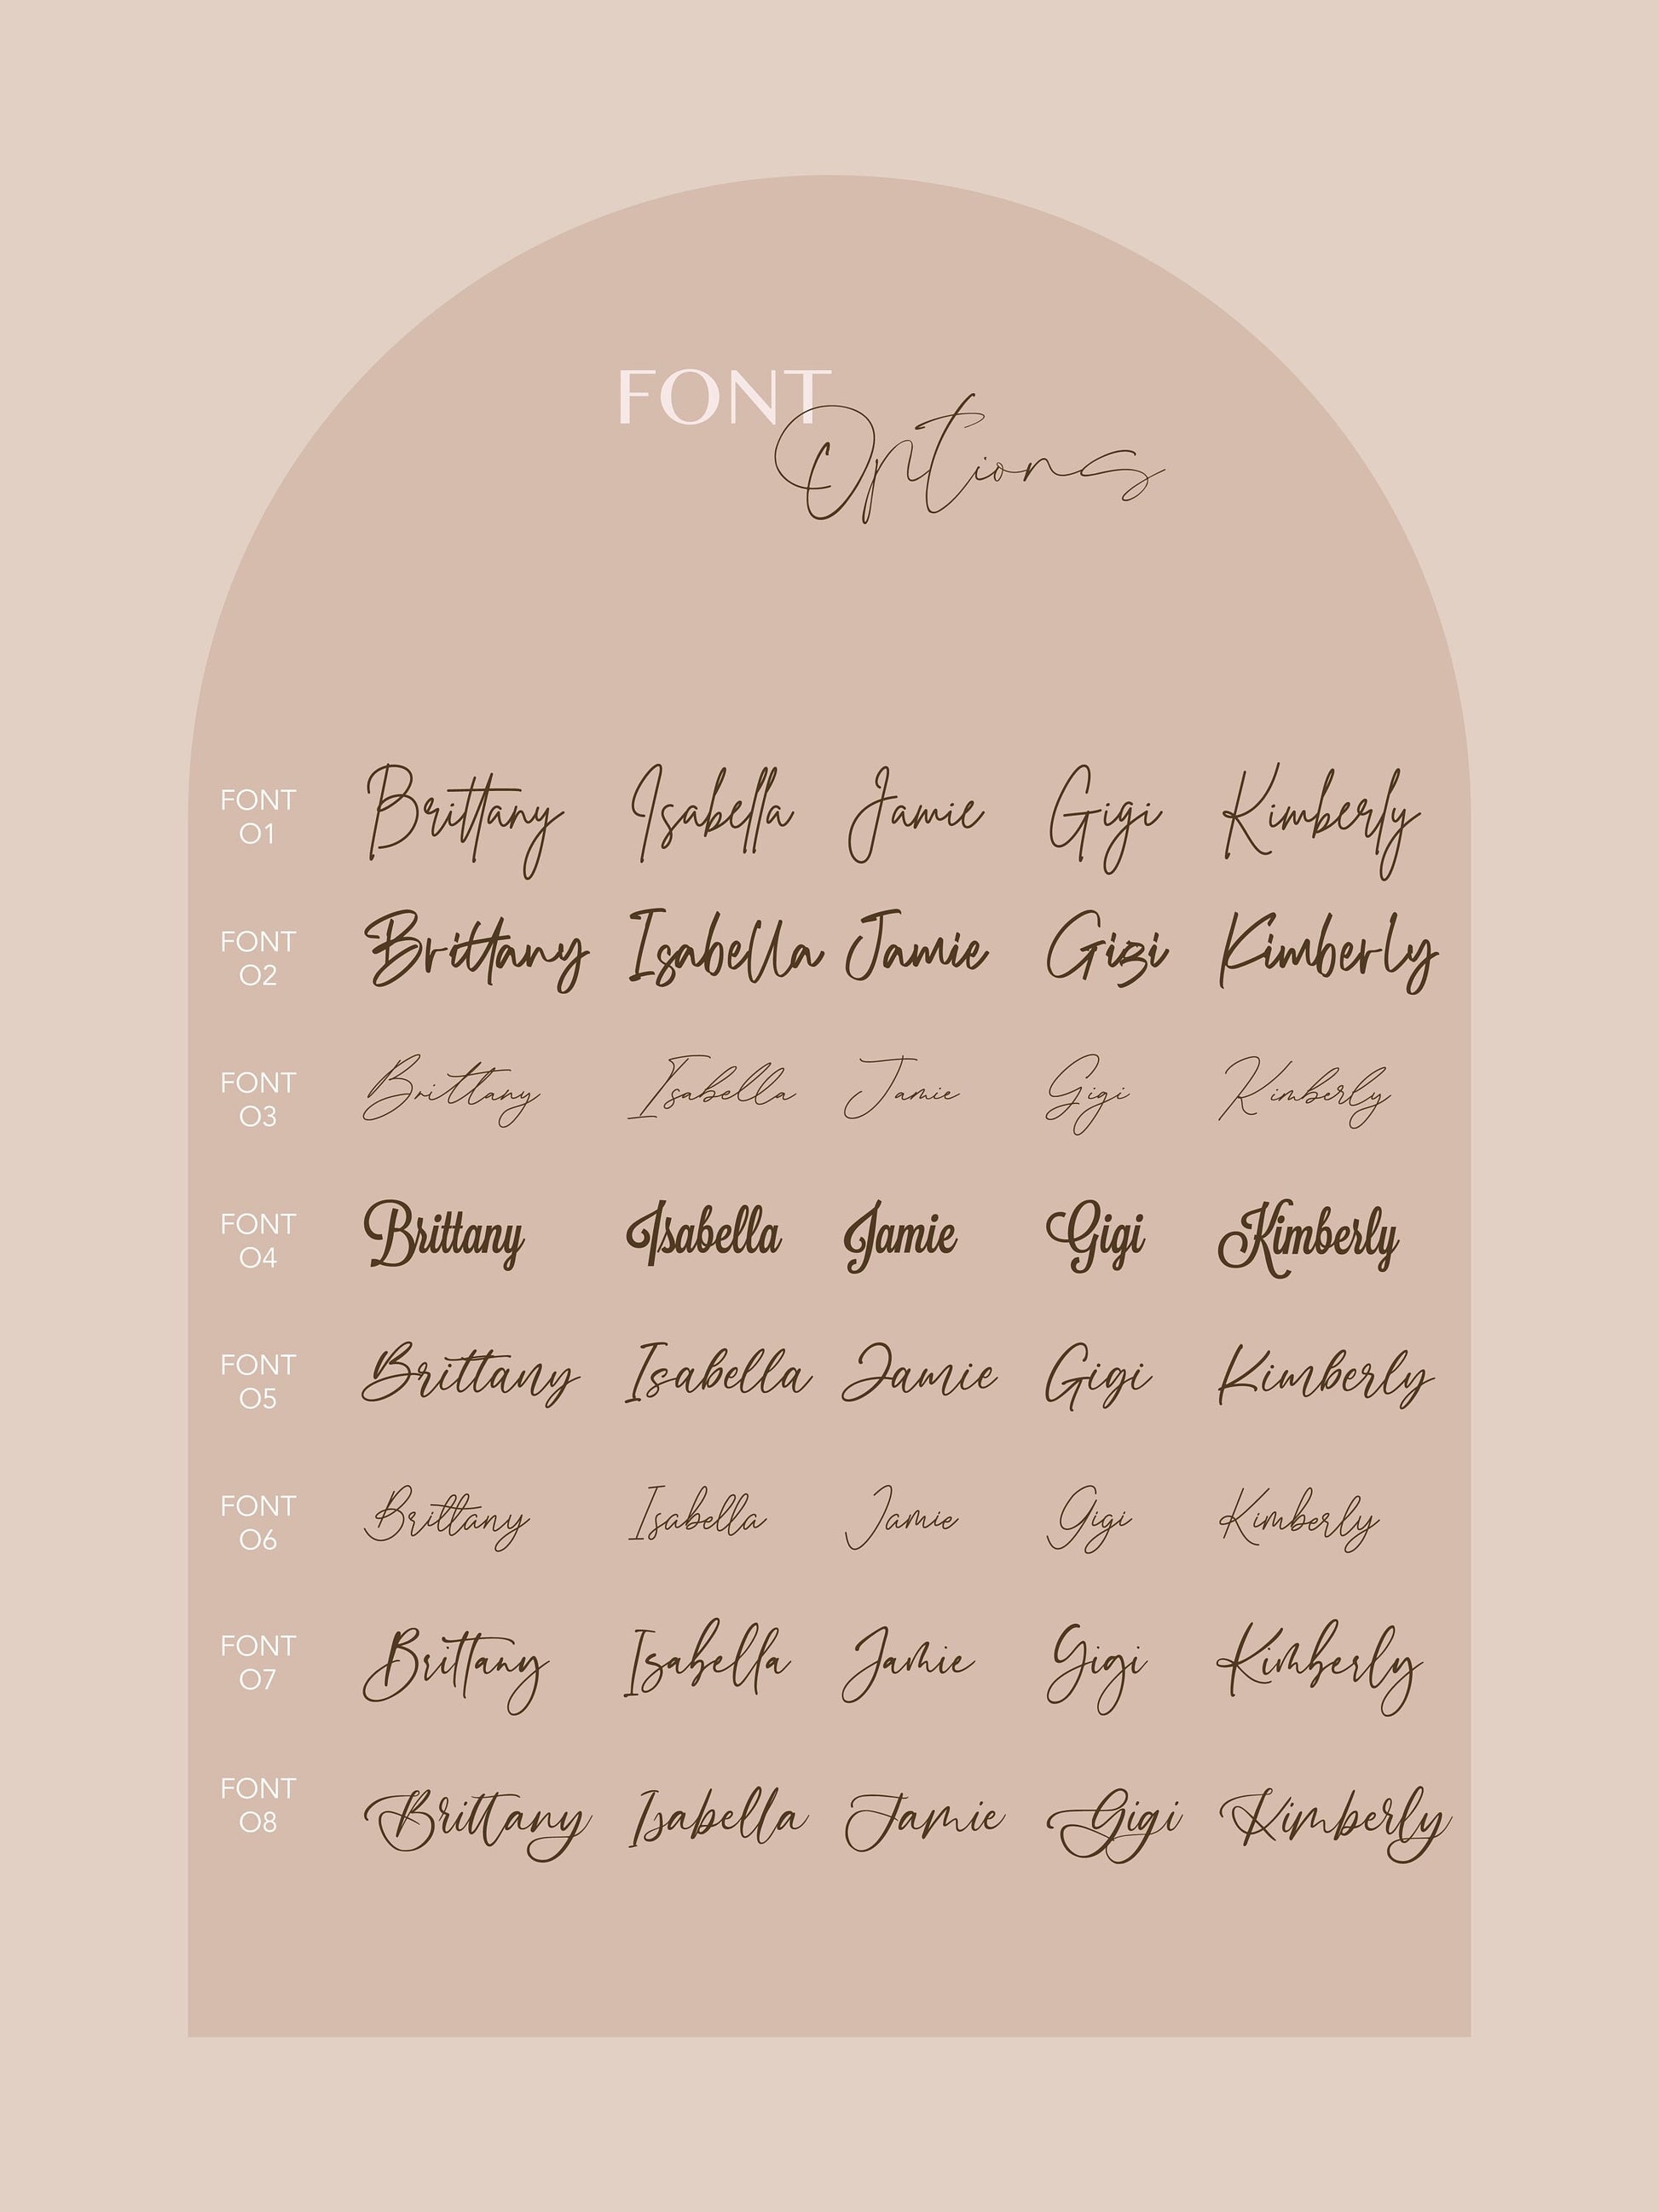 FONT
Options
FONT
01
Brittany Isabella Jamie Gigi Kimberly
FONT
02
Brittany Isabella Jamie Gigi Kimberly
FONT
03
Brittany Isabella Jamie Gigi Kimberly
FONT
04
Brittany Isabella Jamie Gigi Kimberly
FONT
05
Brittany Isabella Jamie Gigi Kimberly
FONT
06
Brittany Isabella Jamie Gigi Kimberly
FONT
07
Brittany Isabella Jamie Gigi Kimberly
FONT
08
Brittany Isabella Jamie Gigi Kimberly